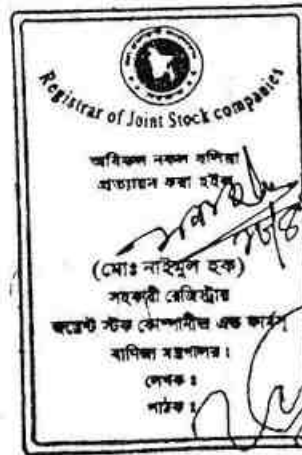 Registrar of Joint Stock companies
অবিকল নকল বলিয়া
প্রত্যায়ন করা হইল
(মোঃ নাইমুল হক)
সহকারী রেজিস্ট্রার
জয়েন্ট স্টক কোম্পানীজ এন্ড ফার্মস্
বাণিজ্য মন্ত্রণালয়।
লেখক :
পাঠক :